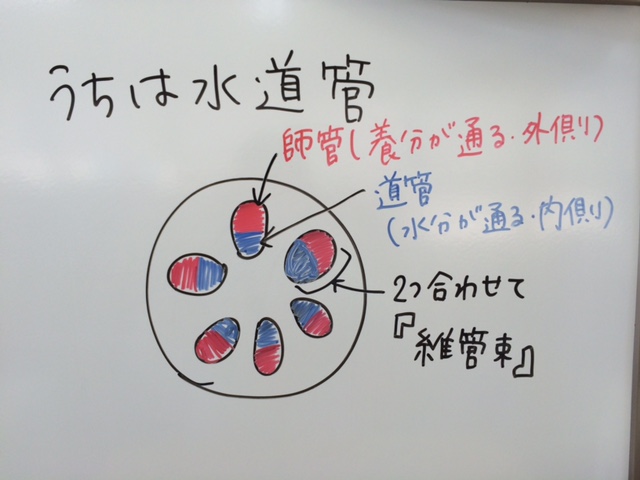 うちは水道管
師管(養分が通る・外側)
道管
(水分が通る・内側)
2つ合わせて
『維管束』